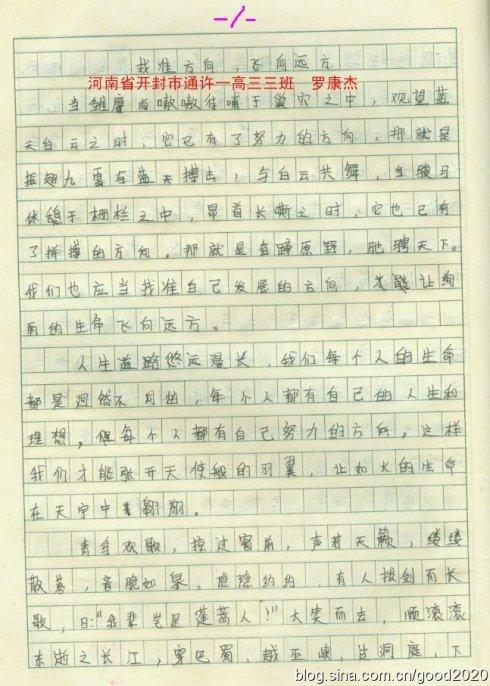 -1-
找准方向，飞向远方
河南省开封市通许一高三三班 罗康杰
当雏鹰尚嗷嗷待哺于巢穴之中，观望蓝
天白云之时，它已有了努力的方向，那就是
振翅九霄与蓝天搏击，与白云共舞，当骏马
休憩于栅栏之中，昂首长嘶之时，它也已有
了拼搏的方向，那就是奋蹄原野，驰骋天下。
我们也应当找准自己发展的方向，才能让绚
丽的生命飞向远方。
人生道路悠远漫长，我们每个人的生命
都是迥然不同的，每个人都有自己的人生和
理想，但每个人都有自己努力的方向，这样
我们才能张开天使般的羽翼，让如火的生命
在天空中翱翔。
青鸟欢歌，掠过窗前，声若天籁，缕缕
散落，音脆如泉。隐隐约约，有人拔剑而长
歌，曰："我辈岂是蓬蒿人！"大笑而去，顺滚滚
东逝之长江，穿巴蜀，越巫峡，出洞庭，下
blog.sina.com.cn/good2020